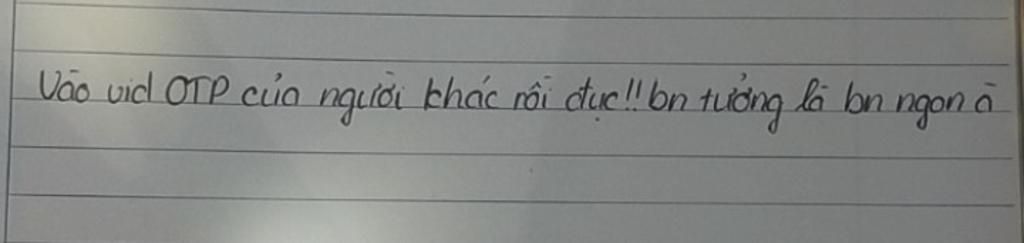 Vào vid OTP của người khác rồi đục!! bn tưởng là bn ngon à